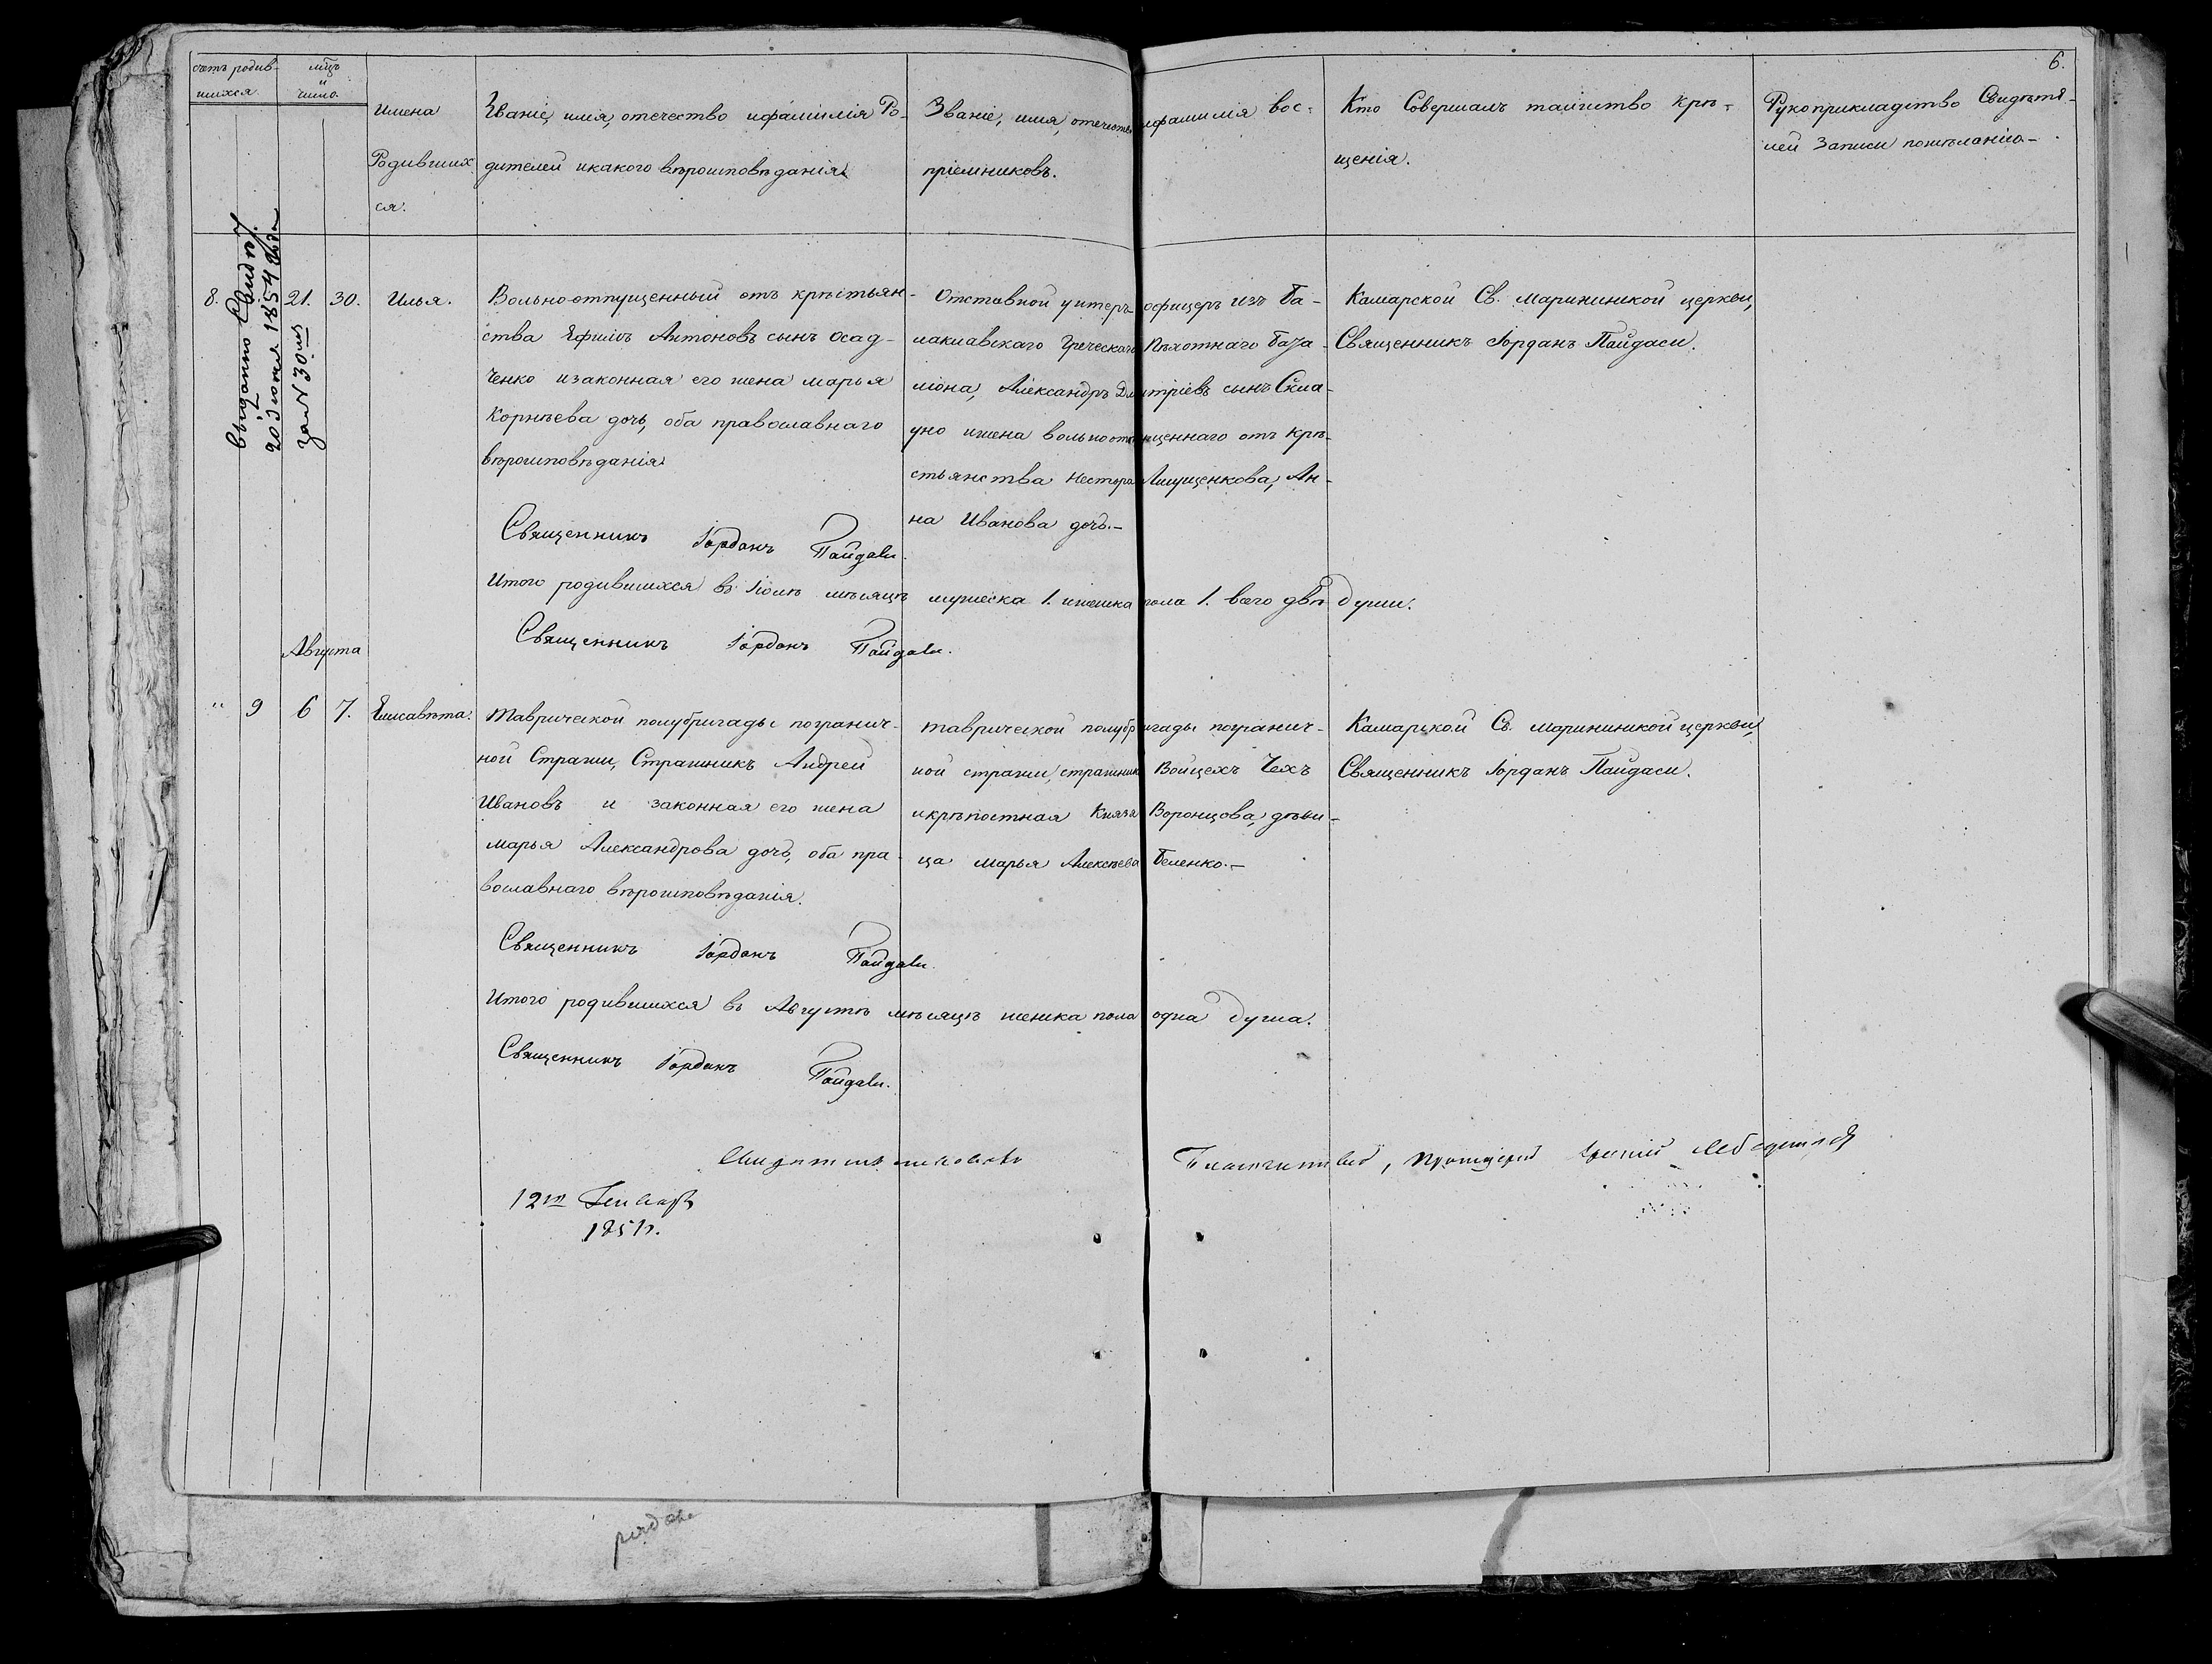 6.
счетъ родив-
шихся.
мцъ
и
число.
Имена
Родивших
ся.
Званіе, имя, отечество ифамилія Ро-
дителей икакого вѣроисповѣданія.
Званіе, имя, отечество ифамилія вос-
пріемниковъ.
Кто Совершалъ таинство кре-
щенія.
Рукоприкладство Свидѣте-
лей Записи пожеланію.-
Выдано Свид.
20 Іюня 1854 года
за N 30
8. 21. 30. Илья.
Вольно-отпущенный отъ крестьян-
ства Ефимъ Антоновъ сынъ Осад-
ченко изаконная его жена Марья
Корнѣева дочь, оба православнаго
вѣроисповѣданія
Отставной унтеръ-офицеръ изъ Ба-
лаклавскаго Греческаго Пѣхотнаго бата-
ліона, Александръ Дмитріевъ сынъ
ижена вольноотпущеннаго отъ кре-
стьянства Нестора Лищенкова, Ан-
на Иванова дочь.-
Камарской Св. Марининской церкви,
Священникъ Іорданъ Пайдаси.
Священникъ Іорданъ Пайдаси.
Итого родившихся въ Іюлѣ мѣсяцѣ мужеска 1. иженска пола 1. всего двѣ души.
Священникъ Іорданъ Пайдаси.
Августа
" 9 6 7. Елисавѣта.
Таврической полубригады погранич-
ной Стражи, Стражникъ Андрей
Ивановъ и законная его жена
Марья Александрова дочь, оба пра-
вославнаго вѣроисповѣданія.
Таврической полубригады погранич-
ной стражи, стражникъ Войцехъ Чехъ
икрѣпостная Князя Воронцова, дѣви-
ца Марья Алексѣева Беленко.-
Камарской Св. Марининской церкви,
Священникъ Іорданъ Пайдаси.
Священникъ Іорданъ Пайдаси.
Итого родившихся въ Августѣ мѣсяцѣ женска пола одна душа.
Священникъ Іорданъ Пайдаси.
Благочинный, Протоіерей
12го Генваря